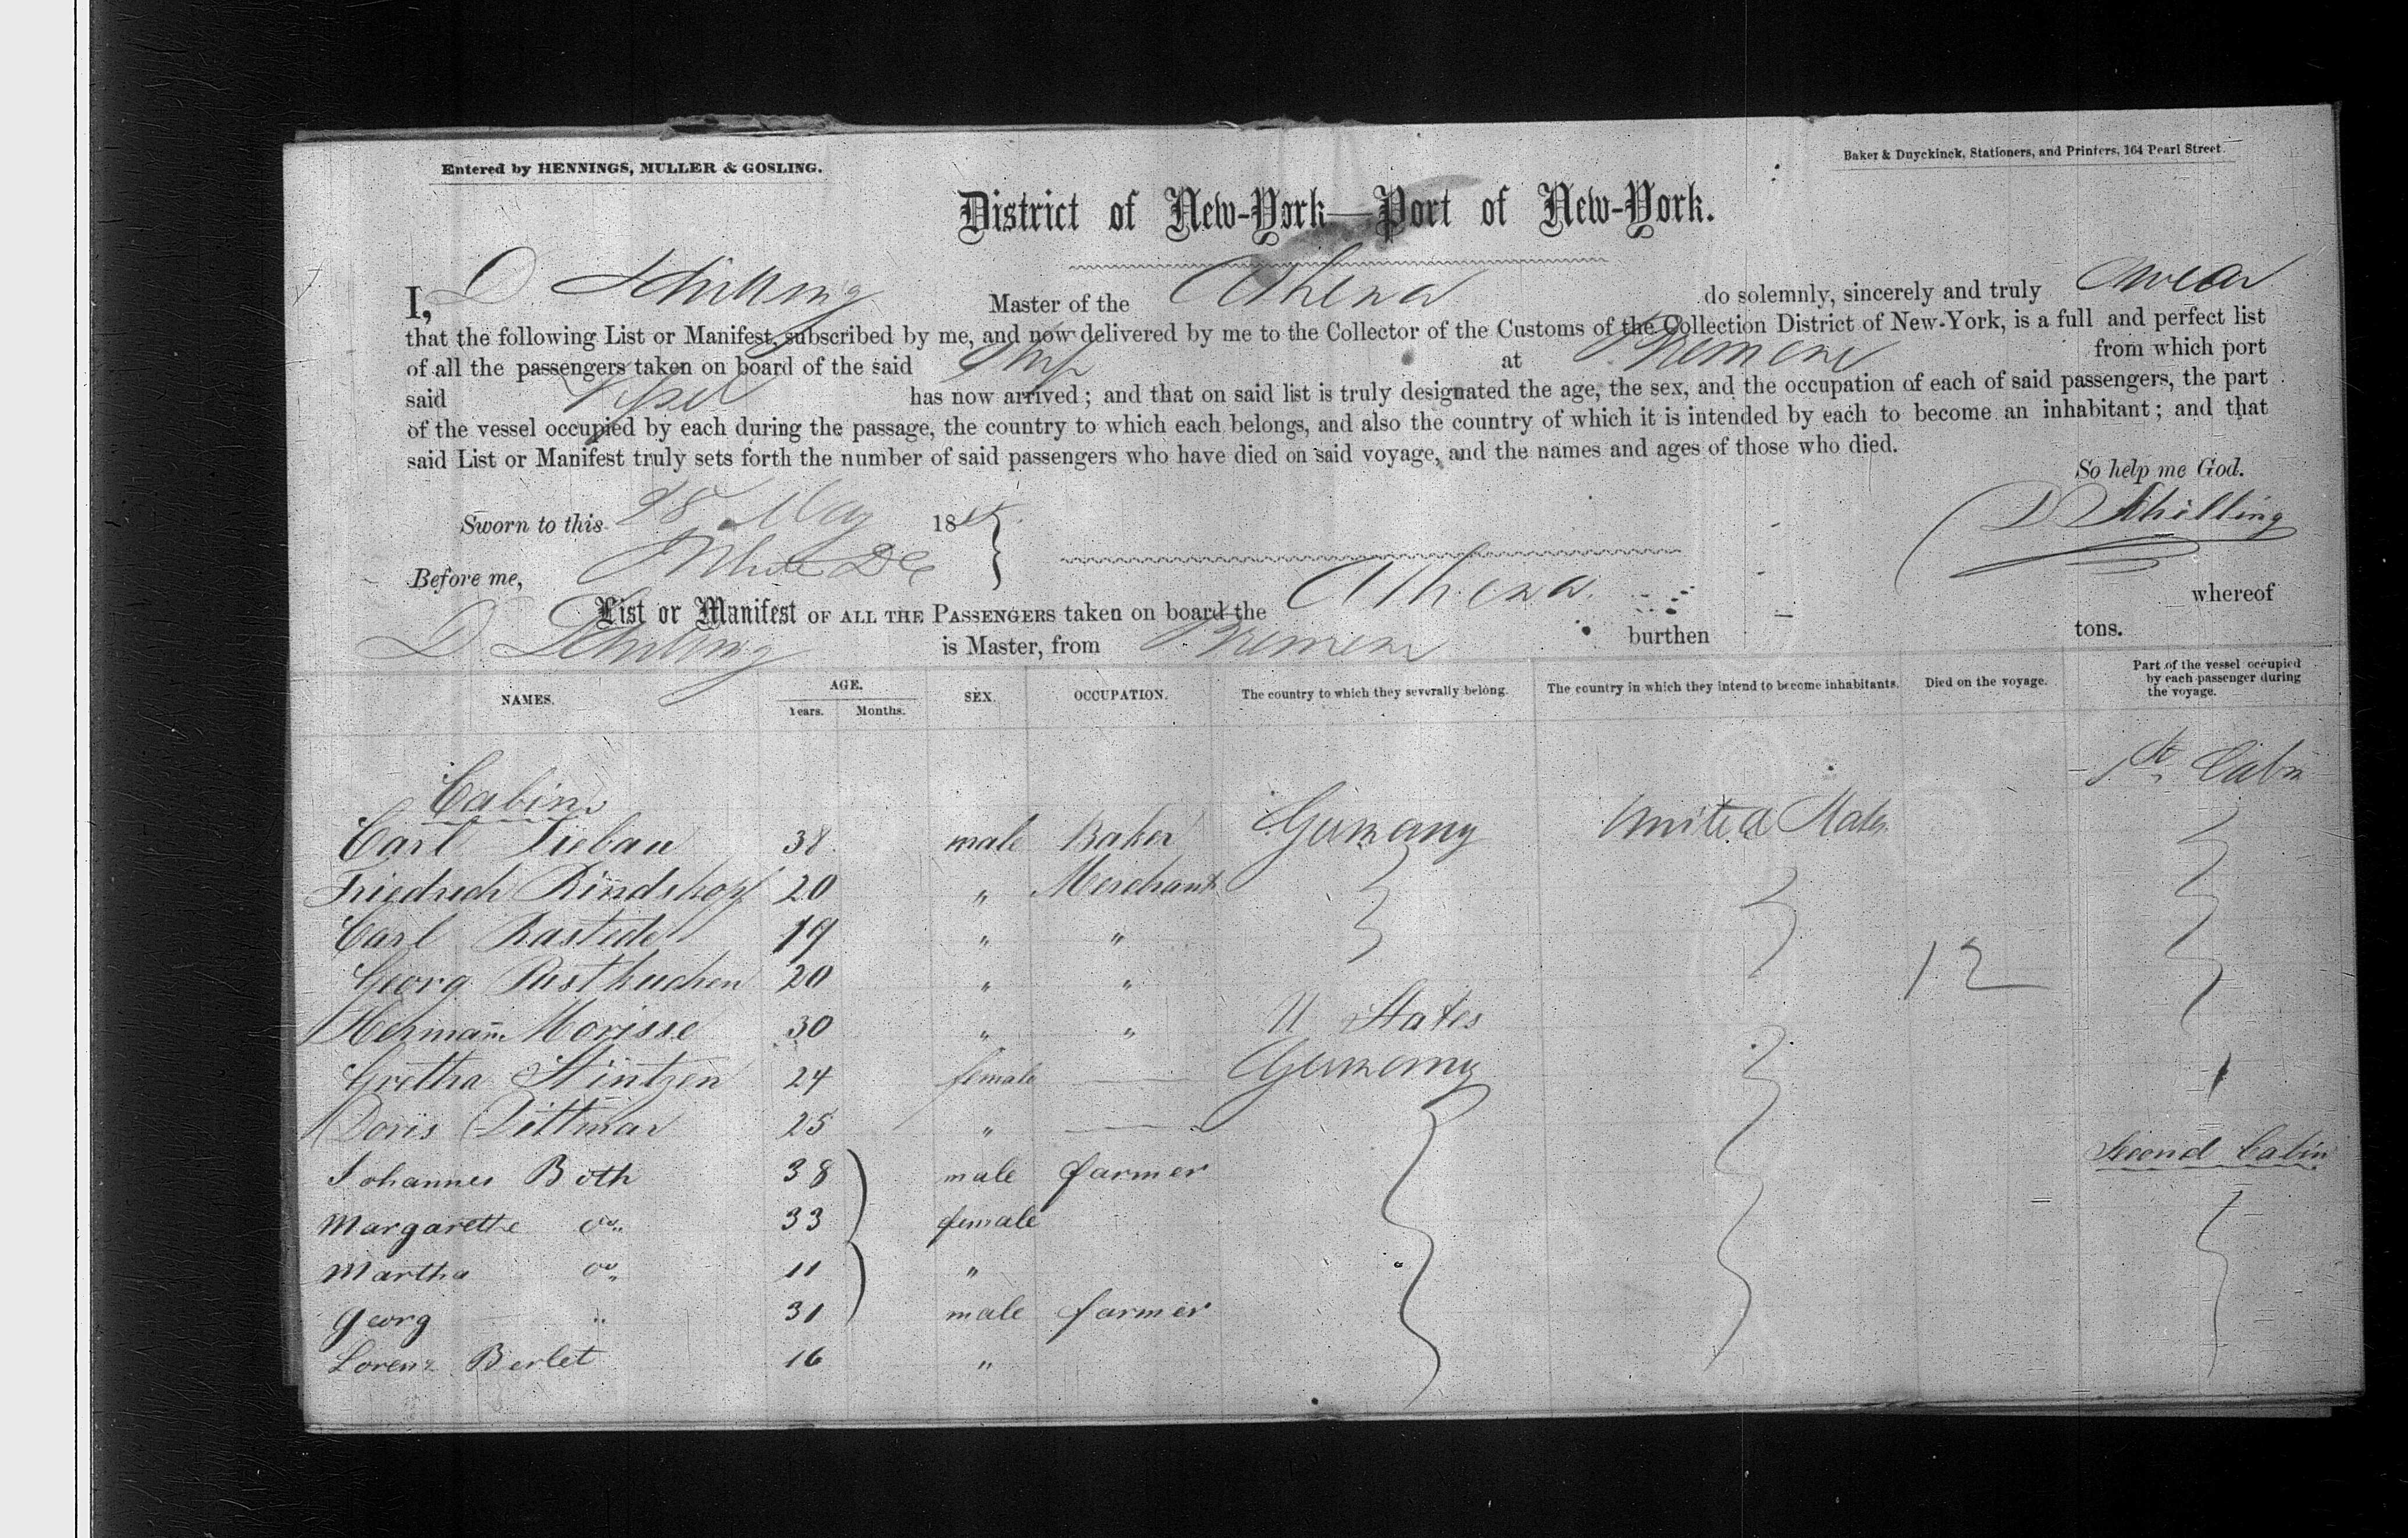 Entered by HENNINGS, MULLER & GOSLING.
Baker & Duyckinck, Stationers, and Printers, 164 Pearl Street.
District of New-York—Port of New-York.
I, D Schilling Master of the Athena do solemnly, sincerely and truly swear
that the following List or Manifest, subscribed by me, and now delivered by me to the Collector of the Customs of the Collection District of New-York, is a full and perfect list
of all the passengers taken on board of the said Ship at Bremen from which port
said Vessel has now arrived; and that on said list is truly designated the age, the sex, and the occupation of each of said passengers, the part
of the vessel occupied by each during the passage, the country to which each belongs, and also the country of which it is intended by each to become an inhabitant; and that
said List or Manifest truly sets forth the number of said passengers who have died on said voyage, and the names and ages of those who died.
So help me God.
Sworn to this 28 May 18
D Schilling
Before me, White
List or Manifest OF ALL THE PASSENGERS taken on board the Athena. whereof
D Schilling is Master, from Bremen burthen tons.
NAMES. AGE. Years. Months. SEX. OCCUPATION. The country to which they severally belong. The country in which they intend to become inhabitants. Died on the voyage. Part of the vessel occupied by each passenger during the voyage.
Cabin 1st Cabin
Carl Liebau 38 male Baker Germany United States
Friedrich Rindskopf 20 " Merchant
Carl Rastede 19 " "
Georg Pustkuchen 20 " " 12
Hermann Morisse 30 " " U States
Gretha Stintzen 24 female — Germany
Doris Dittmar 25 " —
Johannes Both 38 male farmer Second Cabin
Margarethe do " 33 female
Martha do " 11 "
Georg " 31 male farmer
Lorenz Berlet 16 "